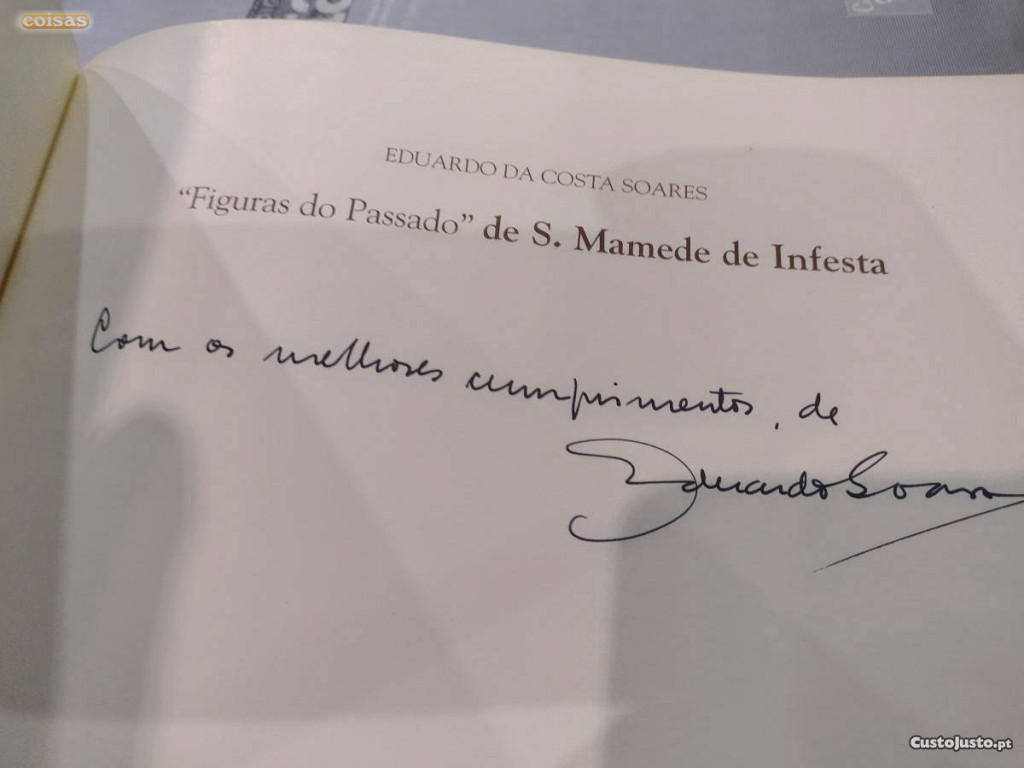 coisas
EDUARDO DA COSTA SOARES
“Figuras do Passado” de S. Mamede de Infesta
Com os melhores cumprimentos, de
Eduardo Soares
CustoJusto.pt